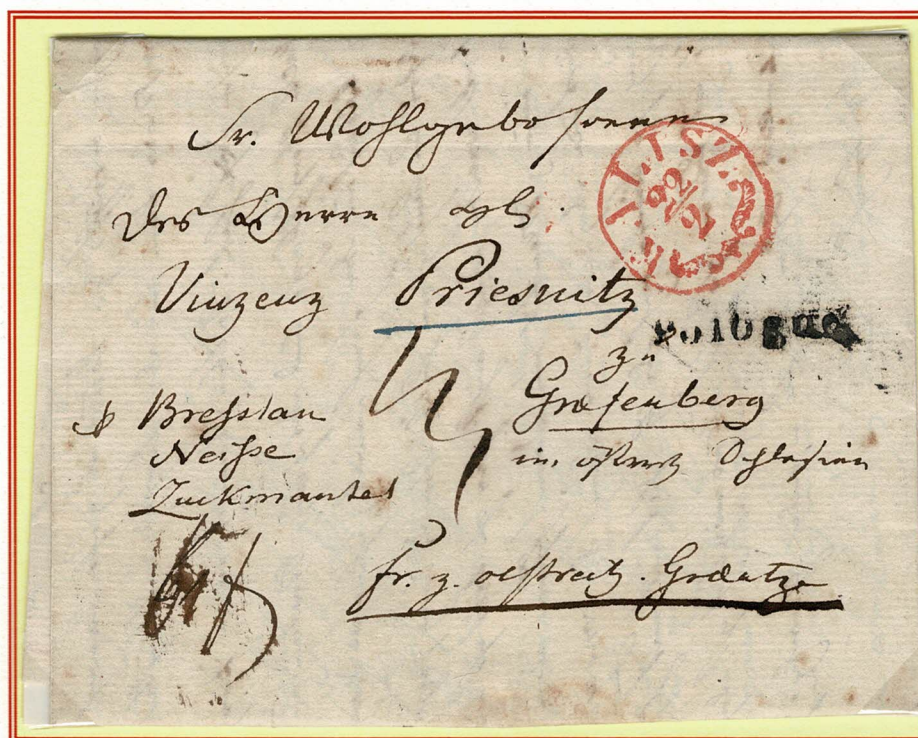 Sr. Wohlgebohrenen
des Herrn
Vinzenz Priesnitz
KALISZ
22/2
Pologne
zu
Græfenberg
in östreich Schlesien
Bresslau
Neisse
Zuckmantel
fr. z. oestreich. Graentze